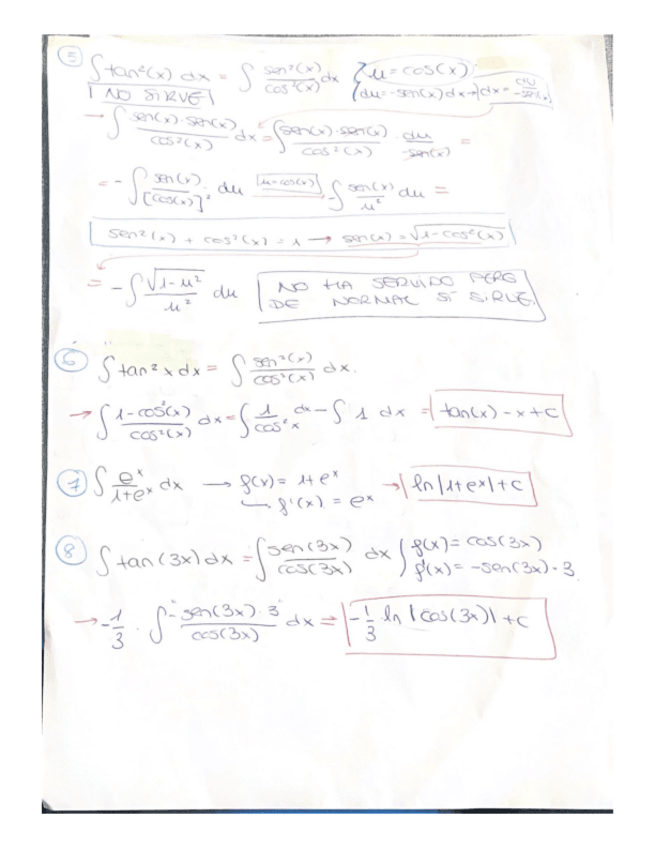 ⑤ ∫ tan²(x) dx = ∫ sen²(x)/cos²(x) dx { u = cos(x)
¡NO SIRVE! du = -sen(x) dx → dx = du/-sen(x)
→ ∫ sen(x)·sen(x)/cos²(x) dx = ∫ sen(x)·sen(x)/cos²(x) · du/-sen(x) =
= - ∫ sen(x)/[cos(x)]² · du u=cos(x) - ∫ sen(x)/u² du =
sen²(x) + cos²(x) = 1 → sen(x) = √1-cos²(x)
= - ∫ √1-u²/u² du NO HA SERVIDO PERO
DE NORMAL SÍ SIRVE.
⑥ ∫ tan² x dx = ∫ sen²(x)/cos²(x) dx.
→ ∫ 1-cos²(x)/cos²(x) dx = ∫ 1/cos² x dx - ∫ 1 dx = tan(x) - x + C
⑦ ∫ eˣ/1+eˣ dx → f(x) = 1+eˣ → ln|1+eˣ| + C
↳ f'(x) = eˣ
⑧ ∫ tan(3x) dx = ∫ sen(3x)/cos(3x) dx { f(x) = cos(3x)
f'(x) = -sen(3x)·3
→ -1/3 · ∫ "-sen(3x)·3"/cos(3x) dx = -1/3 · ln |cos(3x)| + C